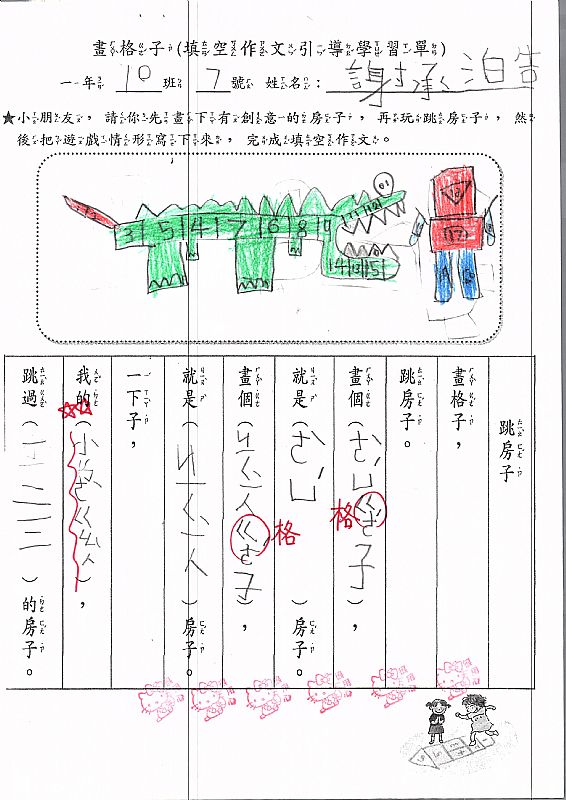 畫格子(填空作文引導學習單)
一年10班7號 姓名:謝承
★小朋友,請你先畫下有創意的房子,再玩跳房子,然
後把遊戲情形寫下來,完成填空作文。
3 5 4 7 6 8 9
14 13 15
跳房子
畫格子,
跳房子。
畫個(ㄜˋㄩㄍㄜˊ子),
格
就是(ㄜˋㄩ)房子。
畫個(人ㄍㄜˊ子),
格
就是(人)房子。
一下子,
我的(小),
跳過(二三)的房子。